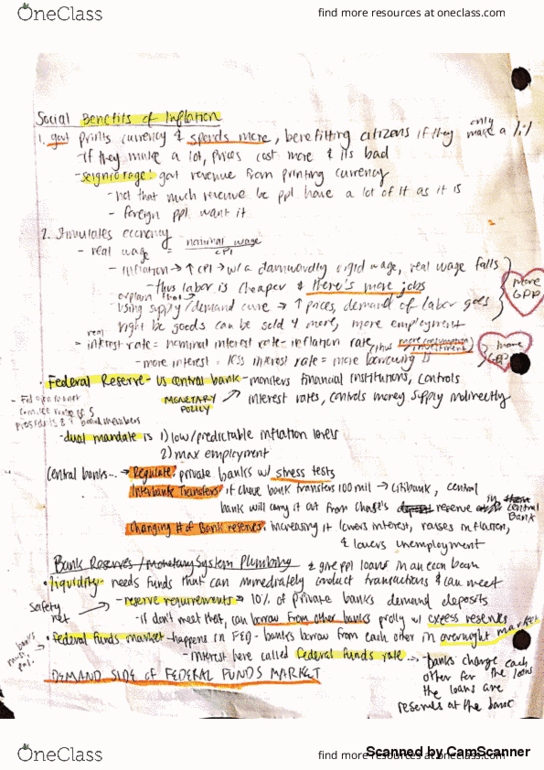 OneClass
find more resources at oneclass.com
Social Benefits of Inflation
1. govt prints currency & spends more, benefitting citizens if they only make a
- if they make a lot, prices cost more & its bad
- seigniorage: govt revenue from printing currency
- not that much revenue bc ppl have a lot of it as it is
- foreign ppl want it
2. Stimulates economy
- real wage = nominal wage
CPI
- inflation → ↑ CPI → w/ a downwardly rigid wage, real wage falls
- thus labor is cheaper & there's more jobs
explain that
- using supply/demand curve → ↑ prices, demand of labor goes
right bc goods can be sold 4 more, more employment
more GDP
real
- interest rate = nominal interest rate - inflation rate
(thus more consumption investment)
- more interest = less interest rate = more borrowing
more GDP
• Federal Reserve - US central bank - monitors financial institutions, controls
MONETARY POLICY
interest rates, controls money supply indirectly
presidents & board members
- dual mandate is 1) low/predictable inflation levels
2) max employment
Central banks... → Regulate: private banks w/ stress tests
Interbank Transfers: if chase bank transfers 100 mil → citibank, central
bank will carry it out from Chase's reserve in central bank
Changing # of Bank reserves: increasing it lowers interest, raises inflation,
& lowers unemployment
Bank Reserves / Monetary System Plumbing
& give ppl loans in an econ boom
• liquidity - needs funds that can immediately conduct transactions & can meet
safety net
- reserve requirements → 10% of private banks demand deposits
- if don't meet that, can borrow from other banks prolly w/ excess reserves
• Federal funds market - happens in FED - banks borrow from each other in overnight market
- interest here called federal funds rate...
banks charge each
other for the loan
the loans are
reserves at the bank
DEMAND SIDE OF FEDERAL FUNDS MARKET
OneClass
find more resources at oneclass.com
Scanned by CamScanner